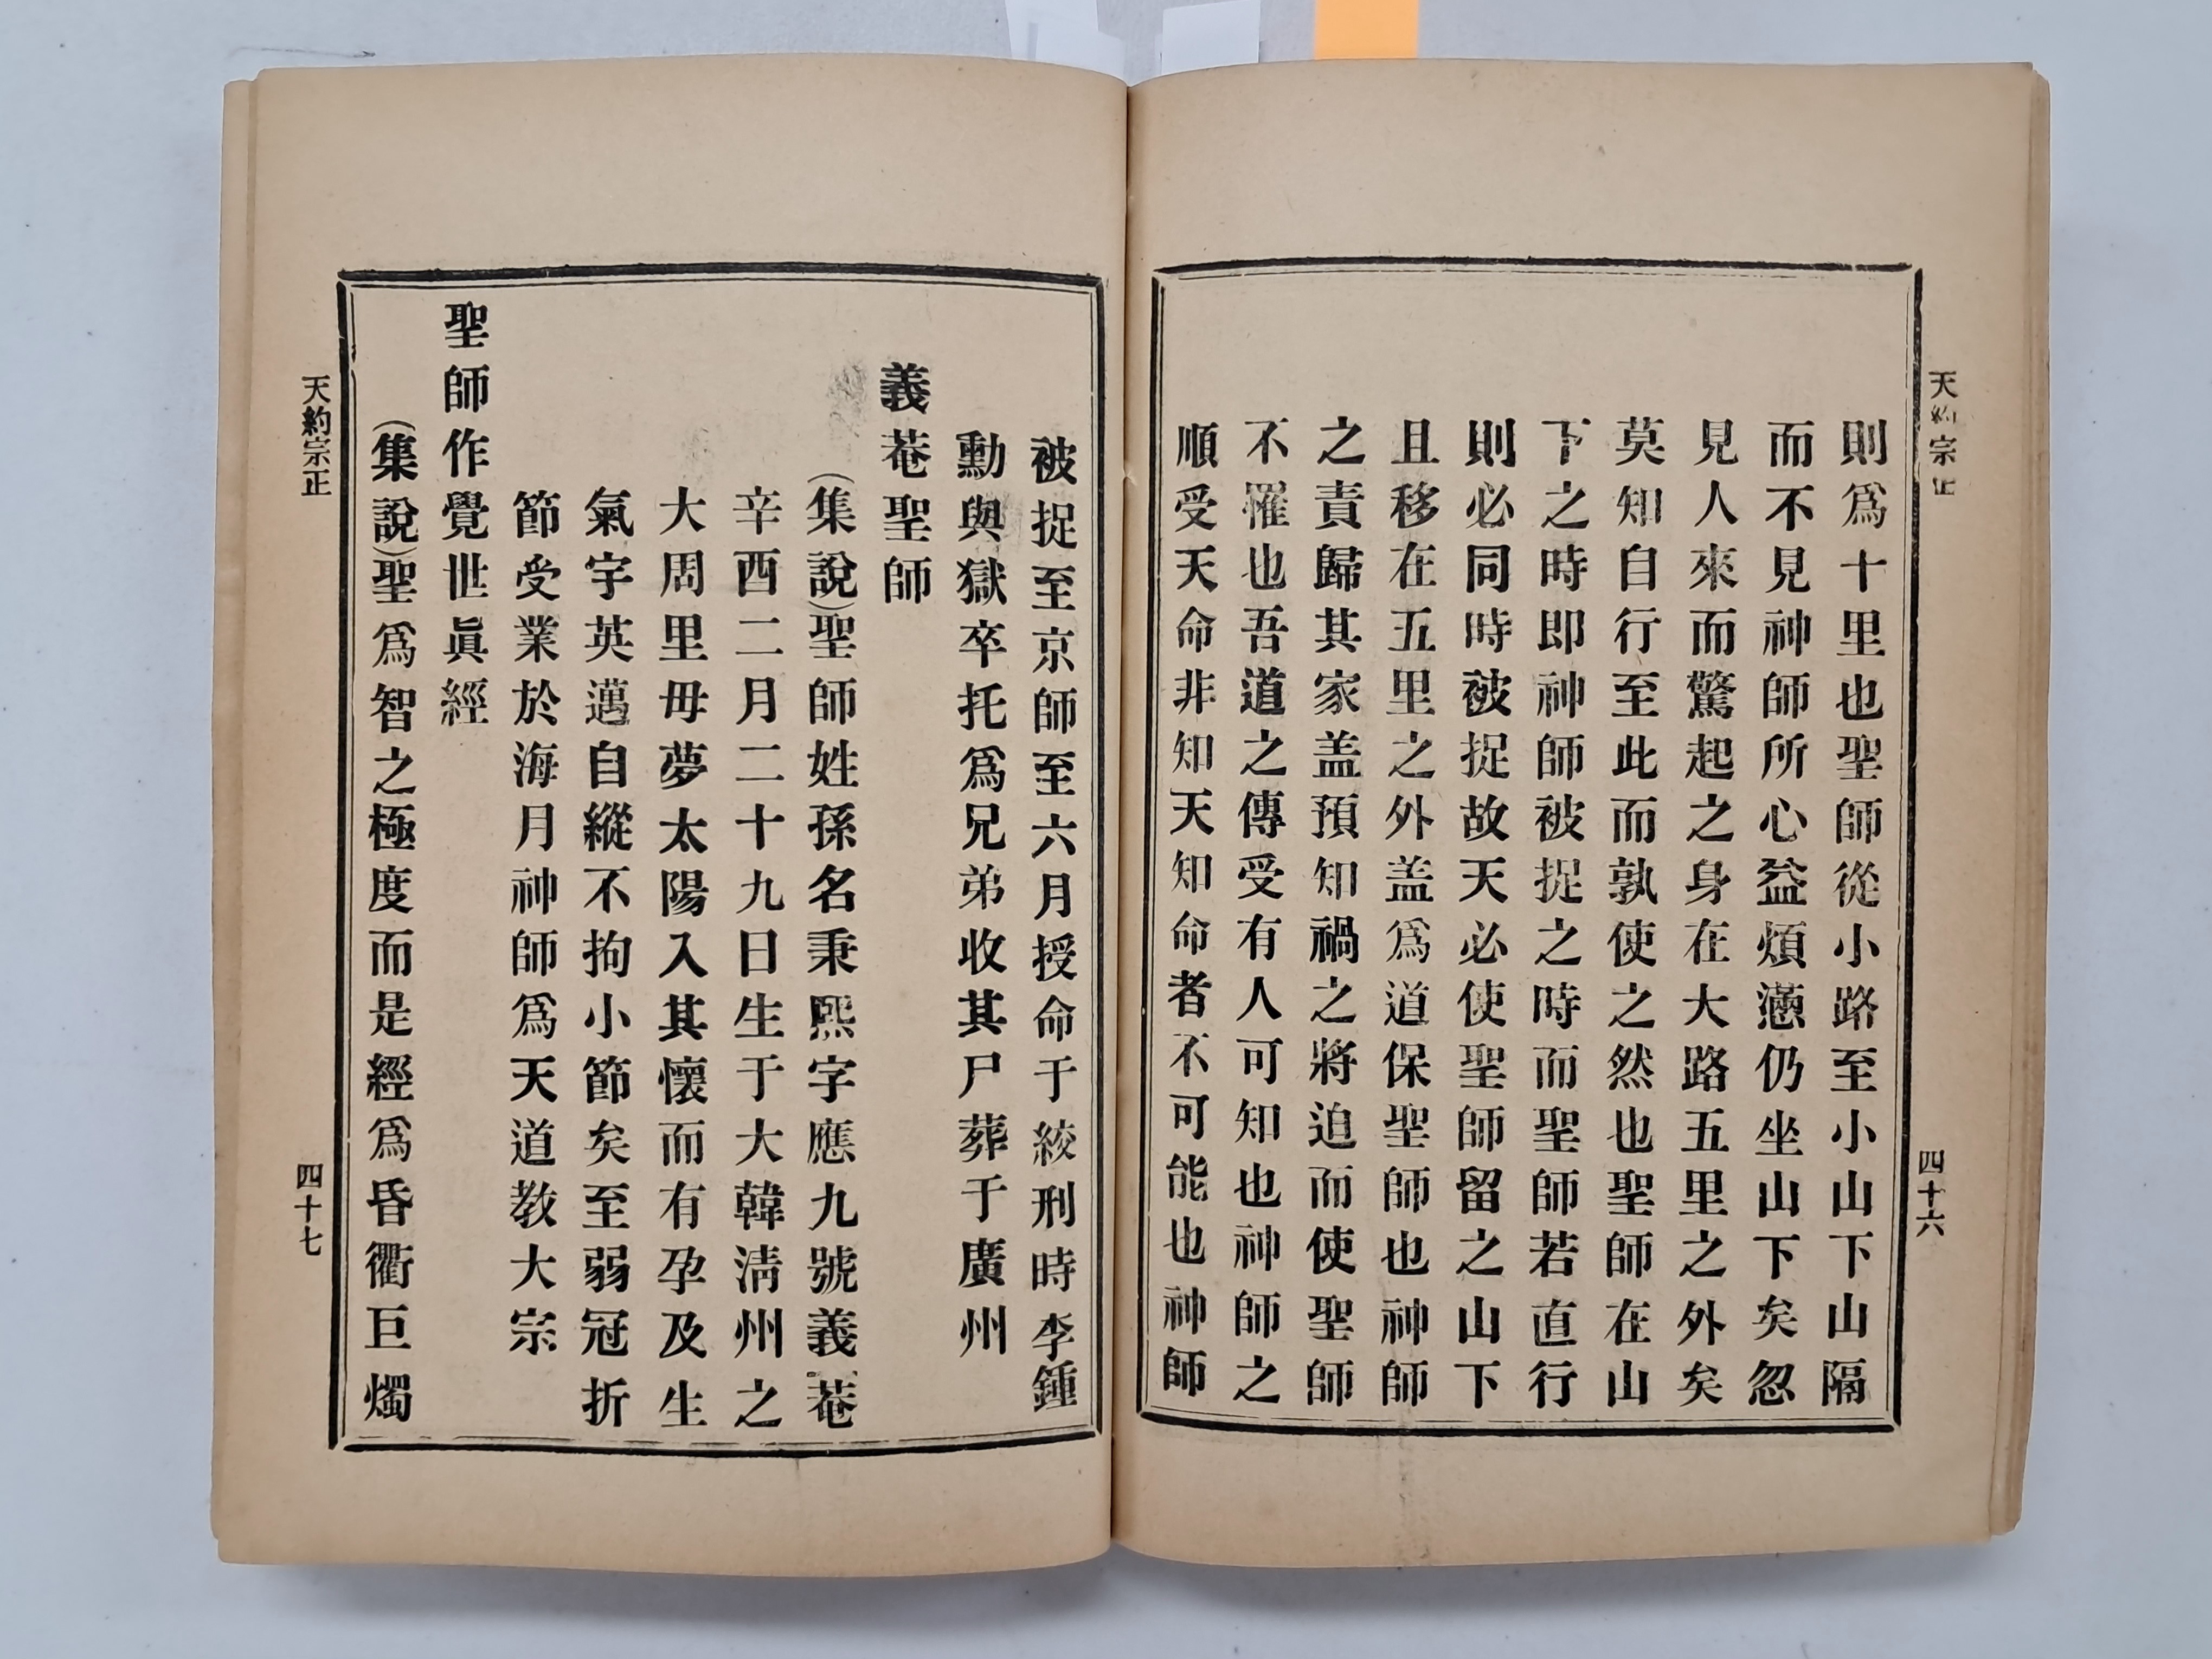 天約宗正
則爲十里也聖師從小路至小山下山隔
而不見神師所心益煩懣仍坐山下矣忽
見人來而驚起之身在大路五里之外矣
莫知自行至此而孰使之然也聖師在山
下之時卽神師被捉之時而聖師若直行
則必同時被捉故天必使聖師留之山下
且移在五里之外盖爲道保聖師也神師
之責歸其家盖預知禍之將迫而使聖師
不罹也吾道之傳受有人可知也神師之
順受天命非知天知命者不可能也神師
四十六
被捉至京師至六月授命于絞刑時李鍾
勳與獄卒托爲兄弟收其尸葬于廣州
義菴聖師
(集說)聖師姓孫名秉熙字應九號義菴
辛酉二月二十九日生于大韓淸州之
大周里毋夢太陽入其懷而有孕及生
氣宇英邁自縱不拘小節矣至弱冠折
節受業於海月神師爲天道敎大宗
聖師作覺世眞經
(集說)聖爲智之極度而是經爲昏衢巨燭
天約宗正
四十七